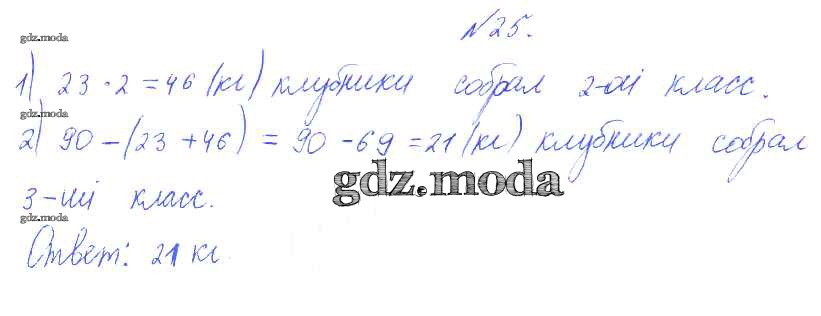 №25.
gdz.moda
1) 23·2=46 (кг) клубники собрал 2-ой класс.
gdz.moda
2) 90-(23+46) = 90-69=21 (кг) клубники собрал
gdz.moda
3-ий класс.
gdz.moda
Ответ: 21 кг